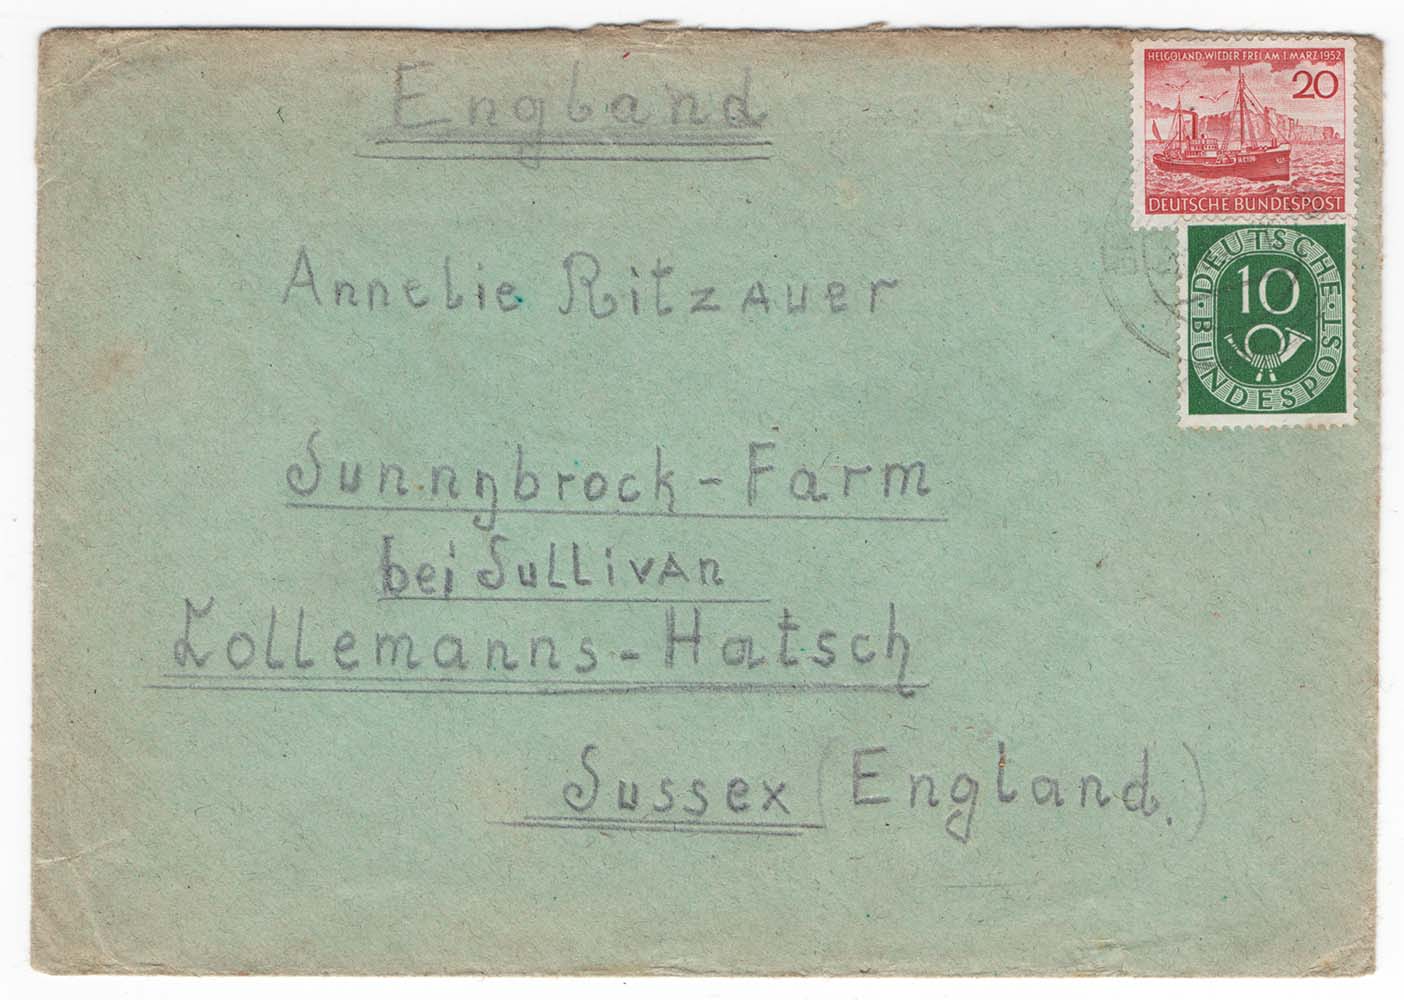 England
HELGOLAND WIEDER FREI AM 1. MÄRZ 1952
20
DEUTSCHE BUNDESPOST
DEUTSCHE BUNDESPOST
10
Annelie Ritzauer
Sunnybrock-Farm
bei Sullivan
Lollemanns-Hatsch
Sussex (England.)